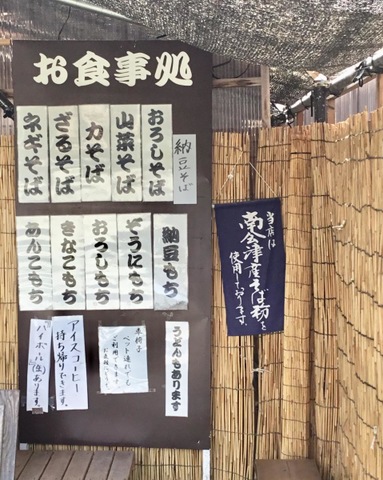 お食事処
おろしそば
山菜そば
力そば
ざるそば
ネギそば
納豆そば
納豆もち
ぞうにもち
おろしもち
きなこもち
あんこもち
うどんもあります
ペット連れでも
ご利用できます
アイスコーヒー
持ち帰りできます。
あります。
当店は
南会津産そば粉を
使用しております。